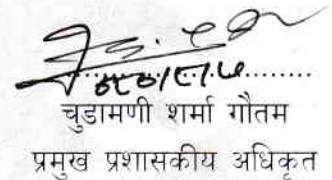 चुडामणी शर्मा गौतम
प्रमुख प्रशासकीय अधिकृत